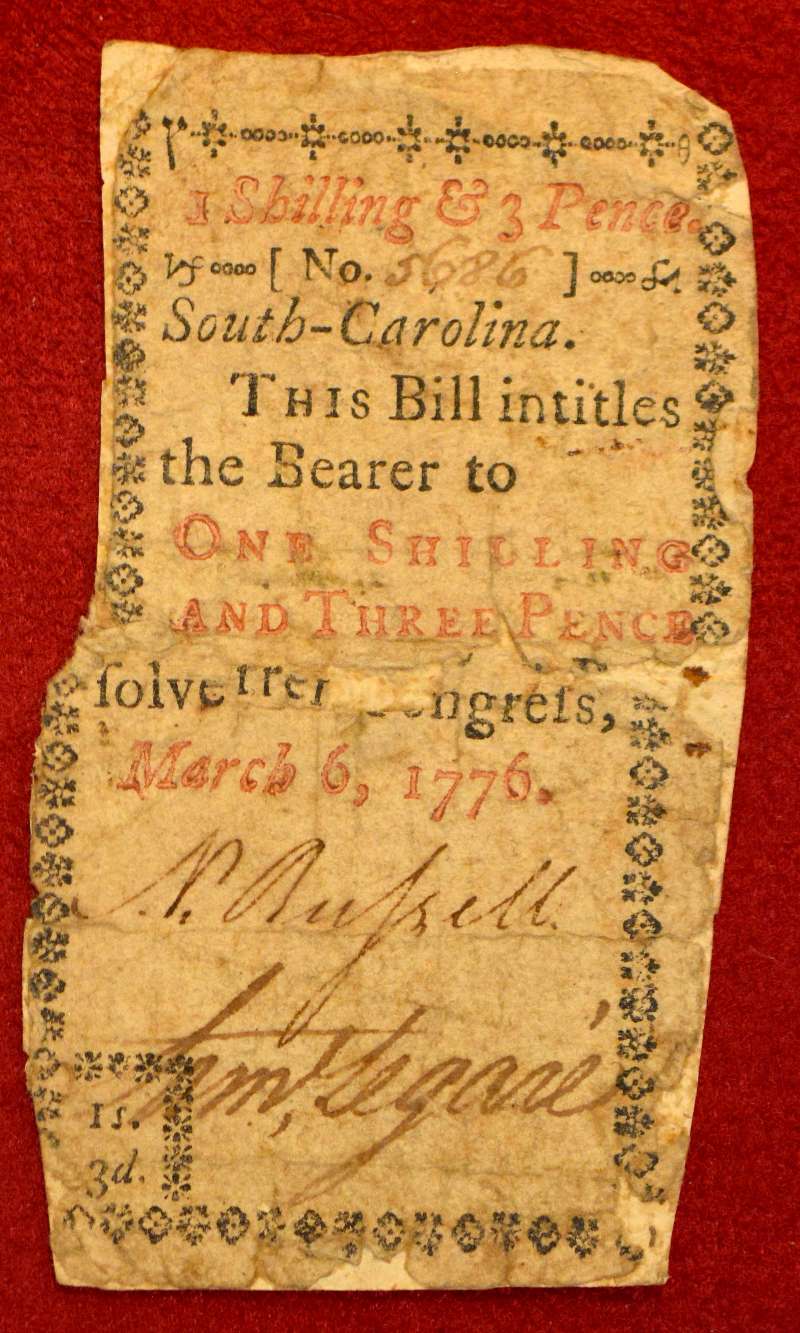 1 Shilling & 3 Pence.
[ No. 5686 ]
South-Carolina.
THIS Bill intitles
the Bearer to
ONE SHILLING
AND THREE PENCE
ſolve
ngreſs,
March 6, 1776.
N. Ruſsell
Samˡ, Legaré
1s.
3d.